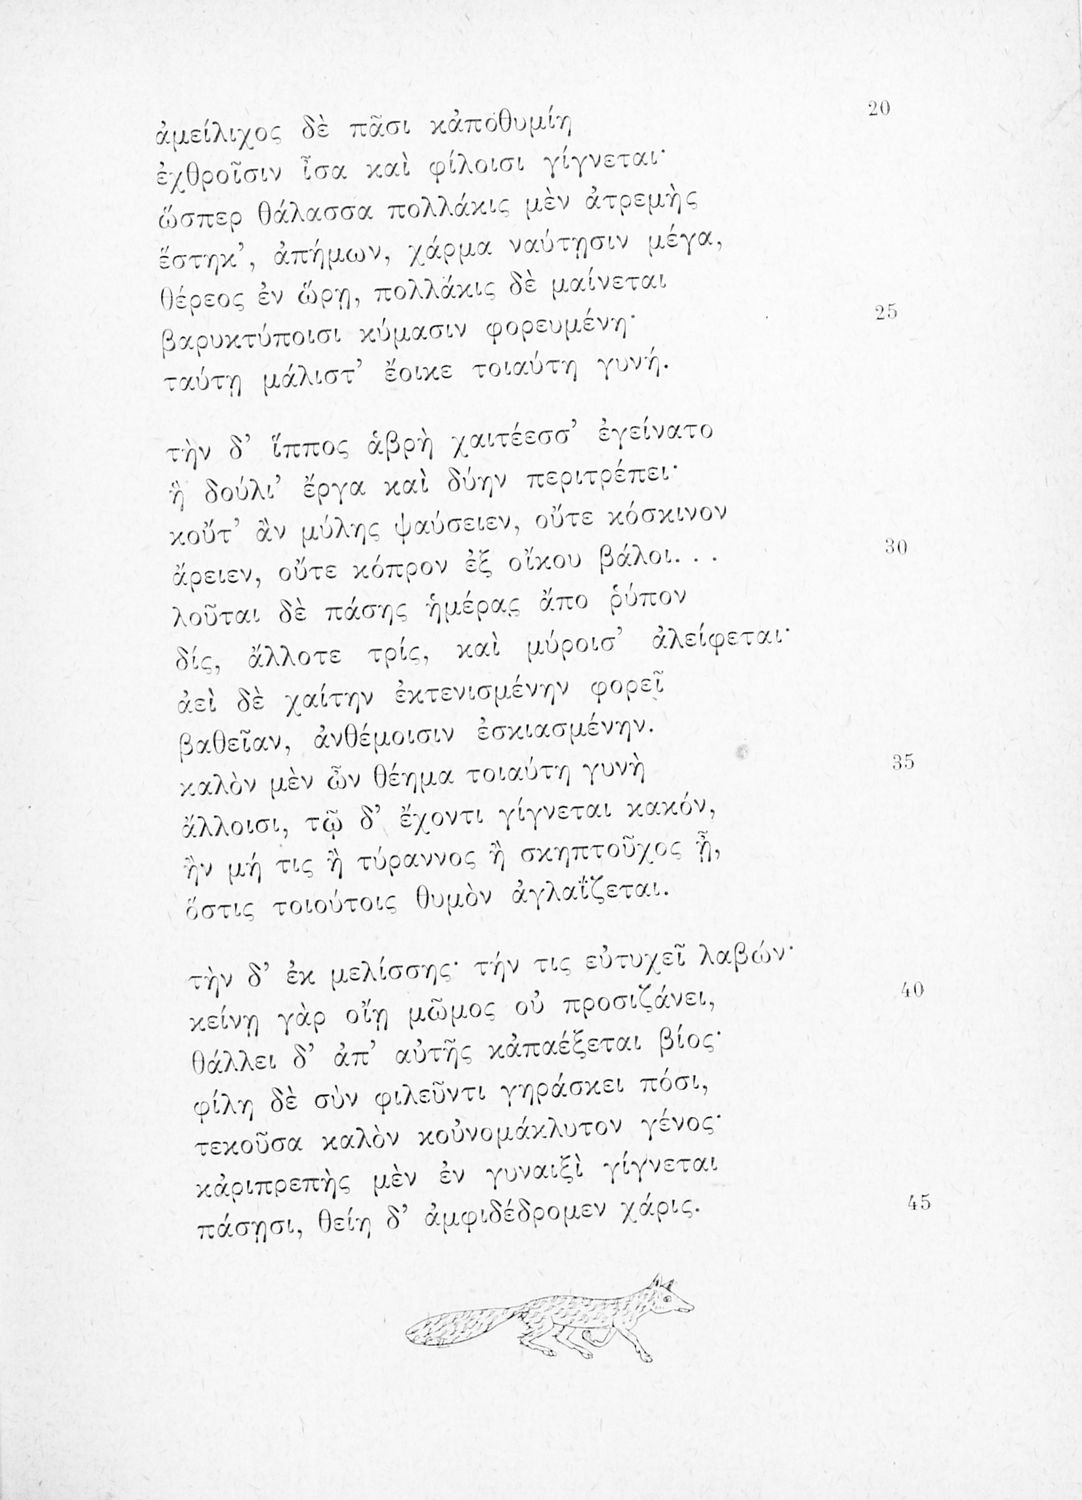 ἀμείλιχος δὲ πᾶσι κἀποθυμίη 20
ἐχθροῖσιν ἶσα καὶ φίλοισι γίγνεται·
ὥσπερ θάλασσα πολλάκις μὲν ἀτρεμὴς
ἕστηκ’, ἀπήμων, χάρμα ναύτῃσιν μέγα,
θέρεος ἐν ὥρῃ, πολλάκις δὲ μαίνεται
βαρυκτύποισι κύμασιν φορευμένη· 25
ταύτῃ μάλιστ’ ἔοικε τοιαύτη γυνή.
τὴν δ’ ἵππος ἁβρὴ χαιτέεσσ’ ἐγείνατο
ἣ δούλι’ ἔργα καὶ δύην περιτρέπει·
κοὔτ’ ἂν μύλης ψαύσειεν, οὔτε κόσκινον
ἄρειεν, οὔτε κόπρον ἐξ οἴκου βάλοι. . . 30
λοῦται δὲ πάσης ἡμέρας ἄπο ῥύπον
δίς, ἄλλοτε τρίς, καὶ μύροισ’ ἀλείφεται·
ἀεὶ δὲ χαίτην ἐκτενισμένην φορεῖ
βαθεῖαν, ἀνθέμοισιν ἐσκιασμένην.
καλὸν μὲν ὦν θέημα τοιαύτη γυνὴ 35
ἄλλοισι, τῷ δ’ ἔχοντι γίγνεται κακόν,
ἢν μή τις ἢ τύραννος ἢ σκηπτοῦχος ᾖ,
ὅστις τοιούτοις θυμὸν ἀγλαΐζεται.
τὴν δ’ ἐκ μελίσσης· τήν τις εὐτυχεῖ λαβών·
κείνῃ γὰρ οἴῃ μῶμος οὐ προσιζάνει, 40
θάλλει δ’ ἀπ’ αὐτῆς κἀπαέξεται βίος·
φίλη δὲ σὺν φιλεῦντι γηράσκει πόσι,
τεκοῦσα καλὸν κοὐνομάκλυτον γένος·
κἀριπρεπὴς μὲν ἐν γυναιξὶ γίγνεται
πάσῃσι, θείη δ’ ἀμφιδέδρομεν χάρις. 45